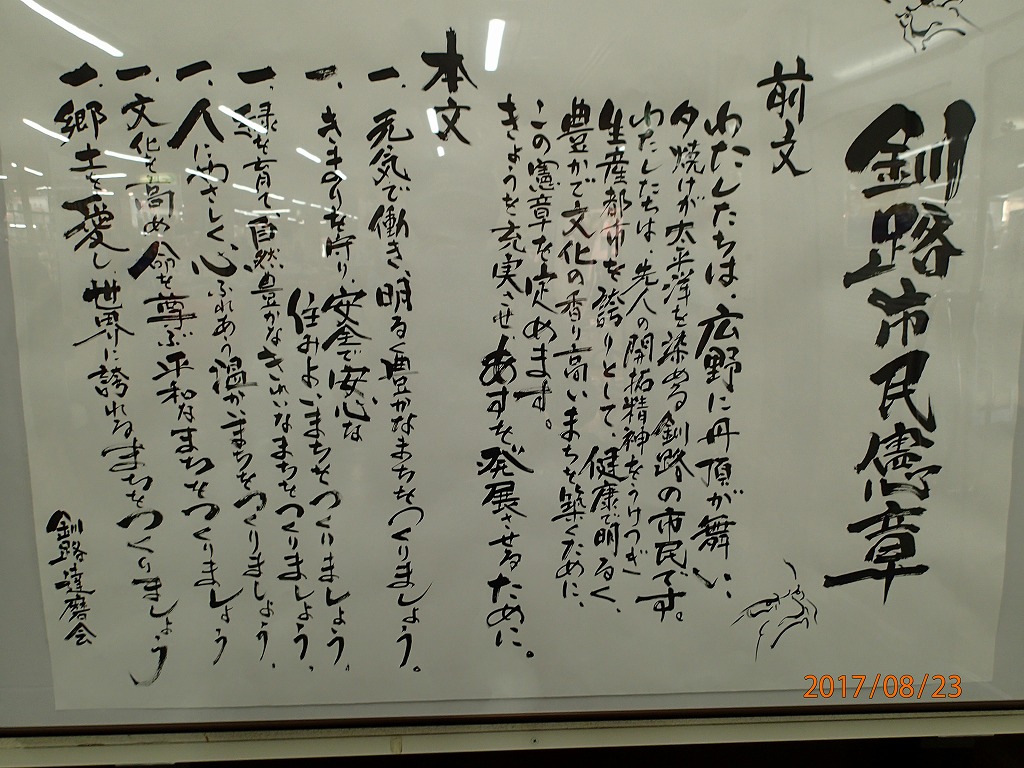 釧路市民憲章
前文
わたしたちは、広野に丹頂が舞い、
夕焼けが太平洋を染める釧路の市民です。
わたしたちは、先人の開拓精神をうけつぎ、
生産都市を誇りとして、健康で明るく、
豊かで文化の香り高いまちを築くために、
この憲章を定めます。
きょうを充実させ、あすを発展させるために。
本文
一、元気で働き、明るく豊かなまちをつくりましょう。
一、きまりを守り、安全で安心な
住みよいまちをつくりましょう。
一、緑を育て、自然豊かなきれいなまちをつくりましょう。
一、人にやさしく、心ふれあう温かいまちをつくりましょう
一、文化を高め、命を尊ぶ平和なまちをつくりましょう
一、郷土を愛し、世界に誇れるまちをつくりましょう
釧路達磨会
2017/08/23